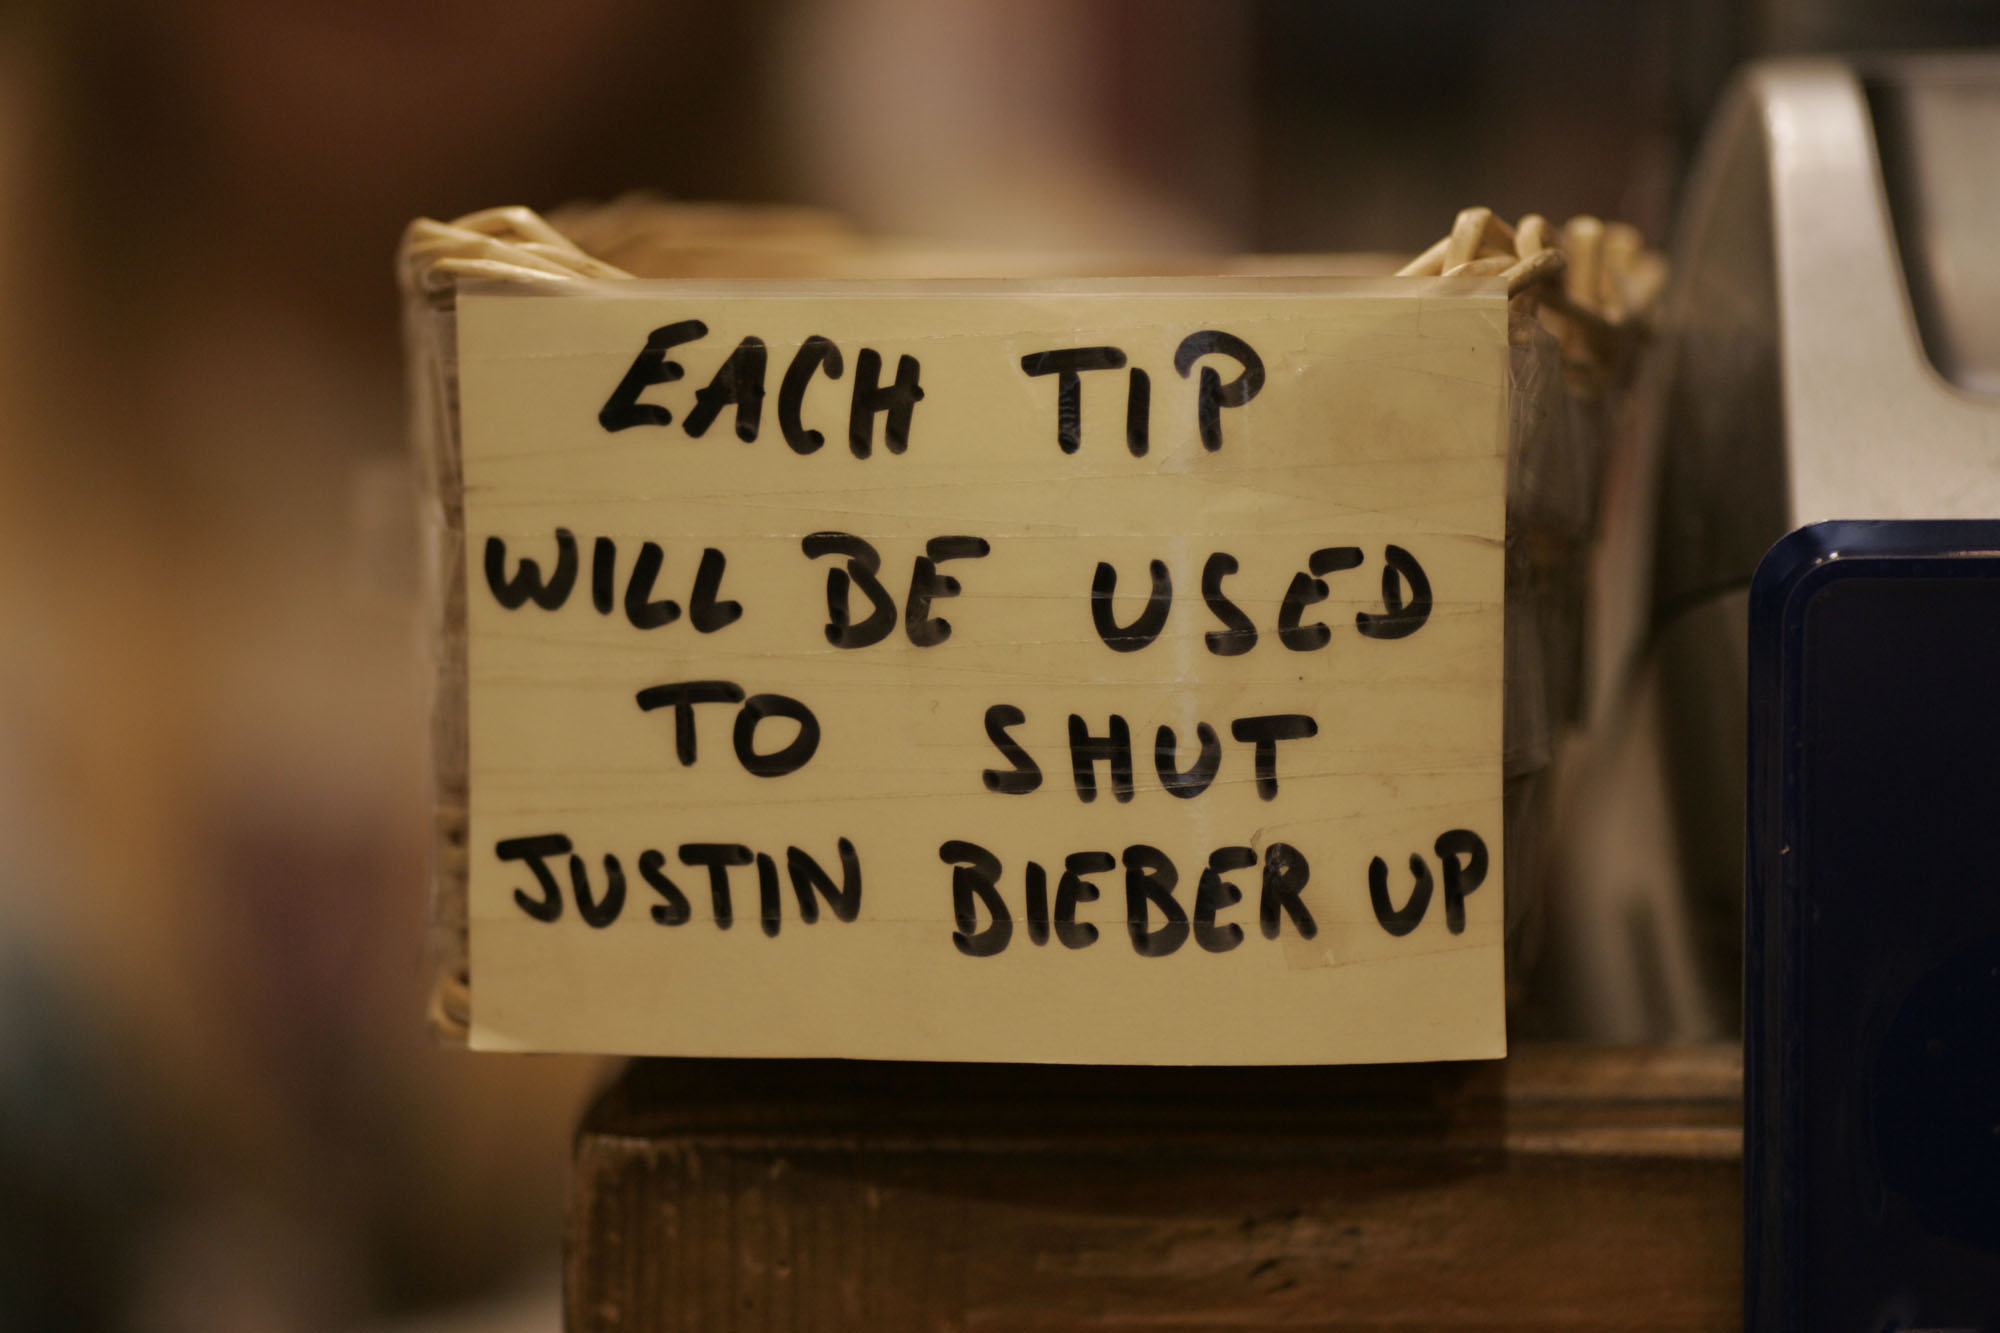 EACH TIP
WILL BE USED
TO SHUT
JUSTIN BIEBER UP